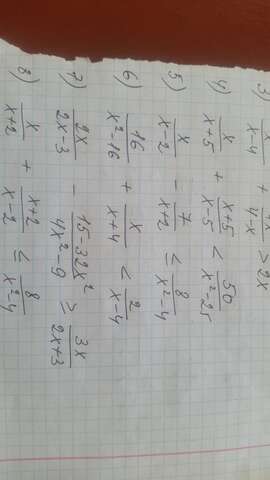 3) x/(x-4) + /(4-x) > 2x
4) x/(x+5) + (x+5)/(x-5) < 50/(x²-25)
5) x/(x-2) - 7/(x+2) ≤ 8/(x²-4)
6) 16/(x²-16) + x/(x+4) < 2/(x-4)
7) 2x/(2x-3) - (15-32x²)/(4x²-9) ≥ 3x/(2x+3)
8) x/(x+2) + (x+2)/(x-2) ≤ 8/(x²-4)